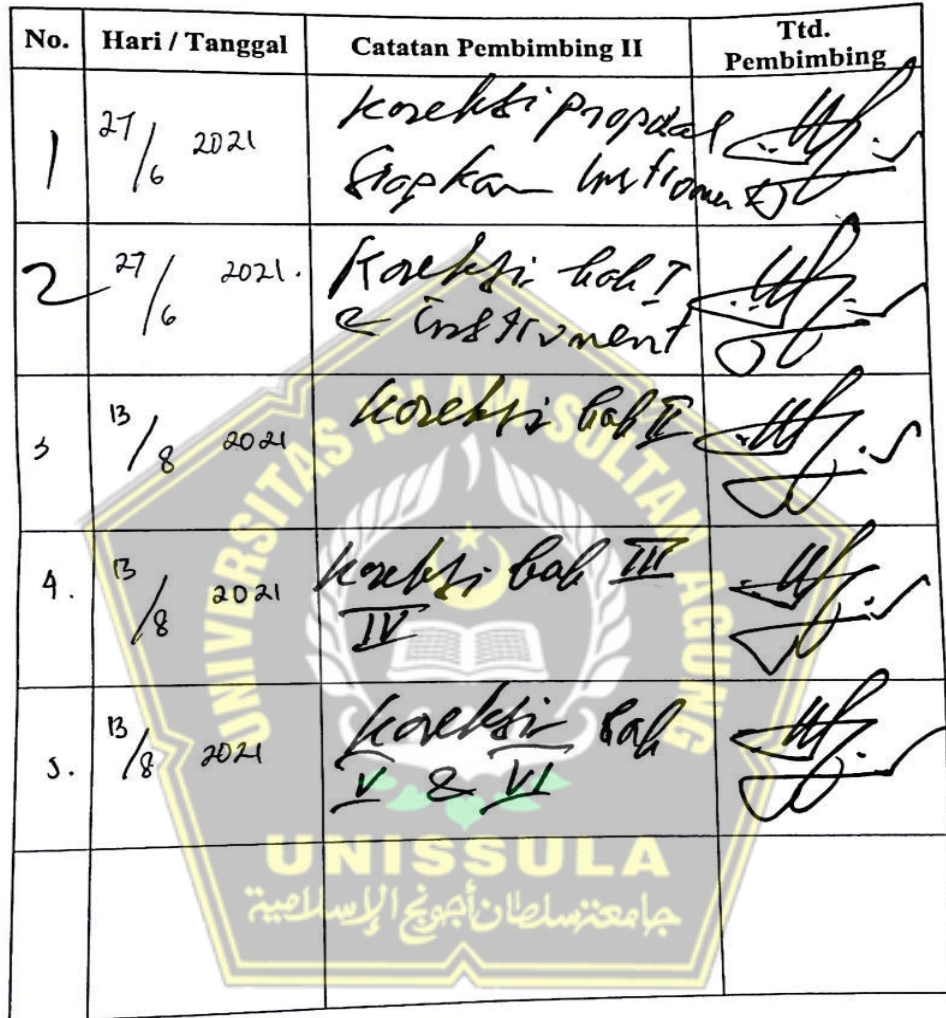 No. Hari / Tanggal Catatan Pembimbing II Ttd. Pembimbing
1 27/6 2021 Koreksi proposal
Siapkan Instrument
2 27/6 2021. Koreksi bab I
& instrument
3 13/8 2021 Koreksi bab II
4. 13/8 2021 Koreksi bab III
IV
5. 13/8 2021 Koreksi bab
V & VI
UNIVERSITAS ISLAM SULTAN AGUNG
UNISSULA
جامعتنسلطان أجونج الإسلامية